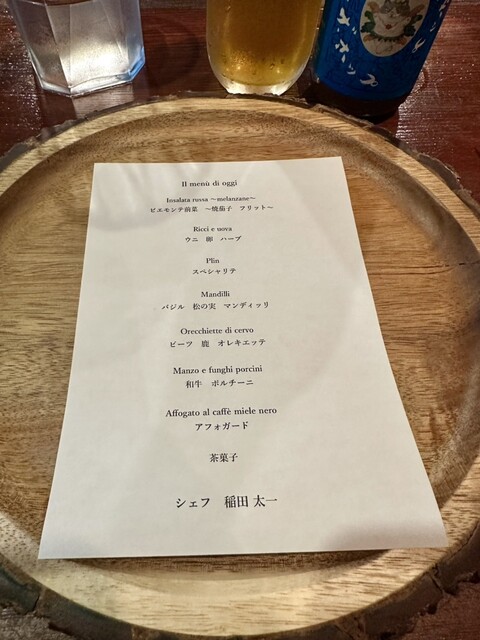 ザボップ
Il menù di oggi
Insalata russa 〜melanzane〜
ピエモンテ前菜 〜焼茄子 フリット〜
Ricci e uova
ウニ 卵 ハーブ
Plin
スペシャリテ
Mandilli
バジル 松の実 マンディッリ
Orecchiette di cervo
ビーツ 鹿 オレキエッテ
Manzo e funghi porcini
和牛 ポルチーニ
Affogato al caffè miele nero
アフォガード
茶菓子
シェフ 稲田 太一